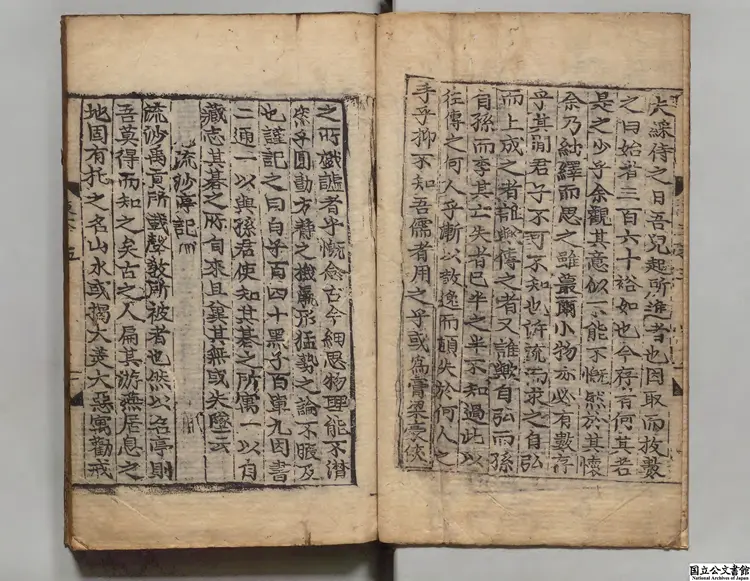 綵侍之日吾兒起所進者也因取而枚數
之曰始者三百六十裕如也今存者何其若
是之少乎余觀其意似不能不慨然於其懷
余乃紬繹而思之雖蕞爾小物亦必有數存
乎其間君子不可不知也泝流而求之自弘
而上成之者誰歟傳之者又誰歟自弘而孫
自孫而李其亡失者已半之半不知過此以
往傳之何人乎漸以散逸而顚失於何人之
手乎抑不知吾儒者用之乎或爲膏粱豪俠
之所戱謔者乎慨念古今細思物理能不潜
然乎圓動方静之機羸形猛勢之論不暇及
也謹記之曰白子百四十黑子百單九因書
二通一以與孫君使知其碁之所寓一以自
藏志其碁之所自來且冀其無或失墜云
流沙亭記
流沙禹貢所載聲教所被者也然以名亭則
吾莫得而知之矣古之人扁其游燕居息之
地固有托之名山水或揭大美大惡寓勸戒
国立公文書館
National Archives of Japan